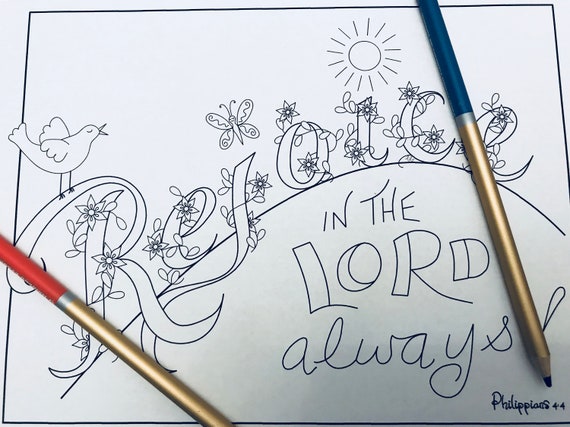 Rejoice
IN THE
LORD
always!
Philippians 4:4